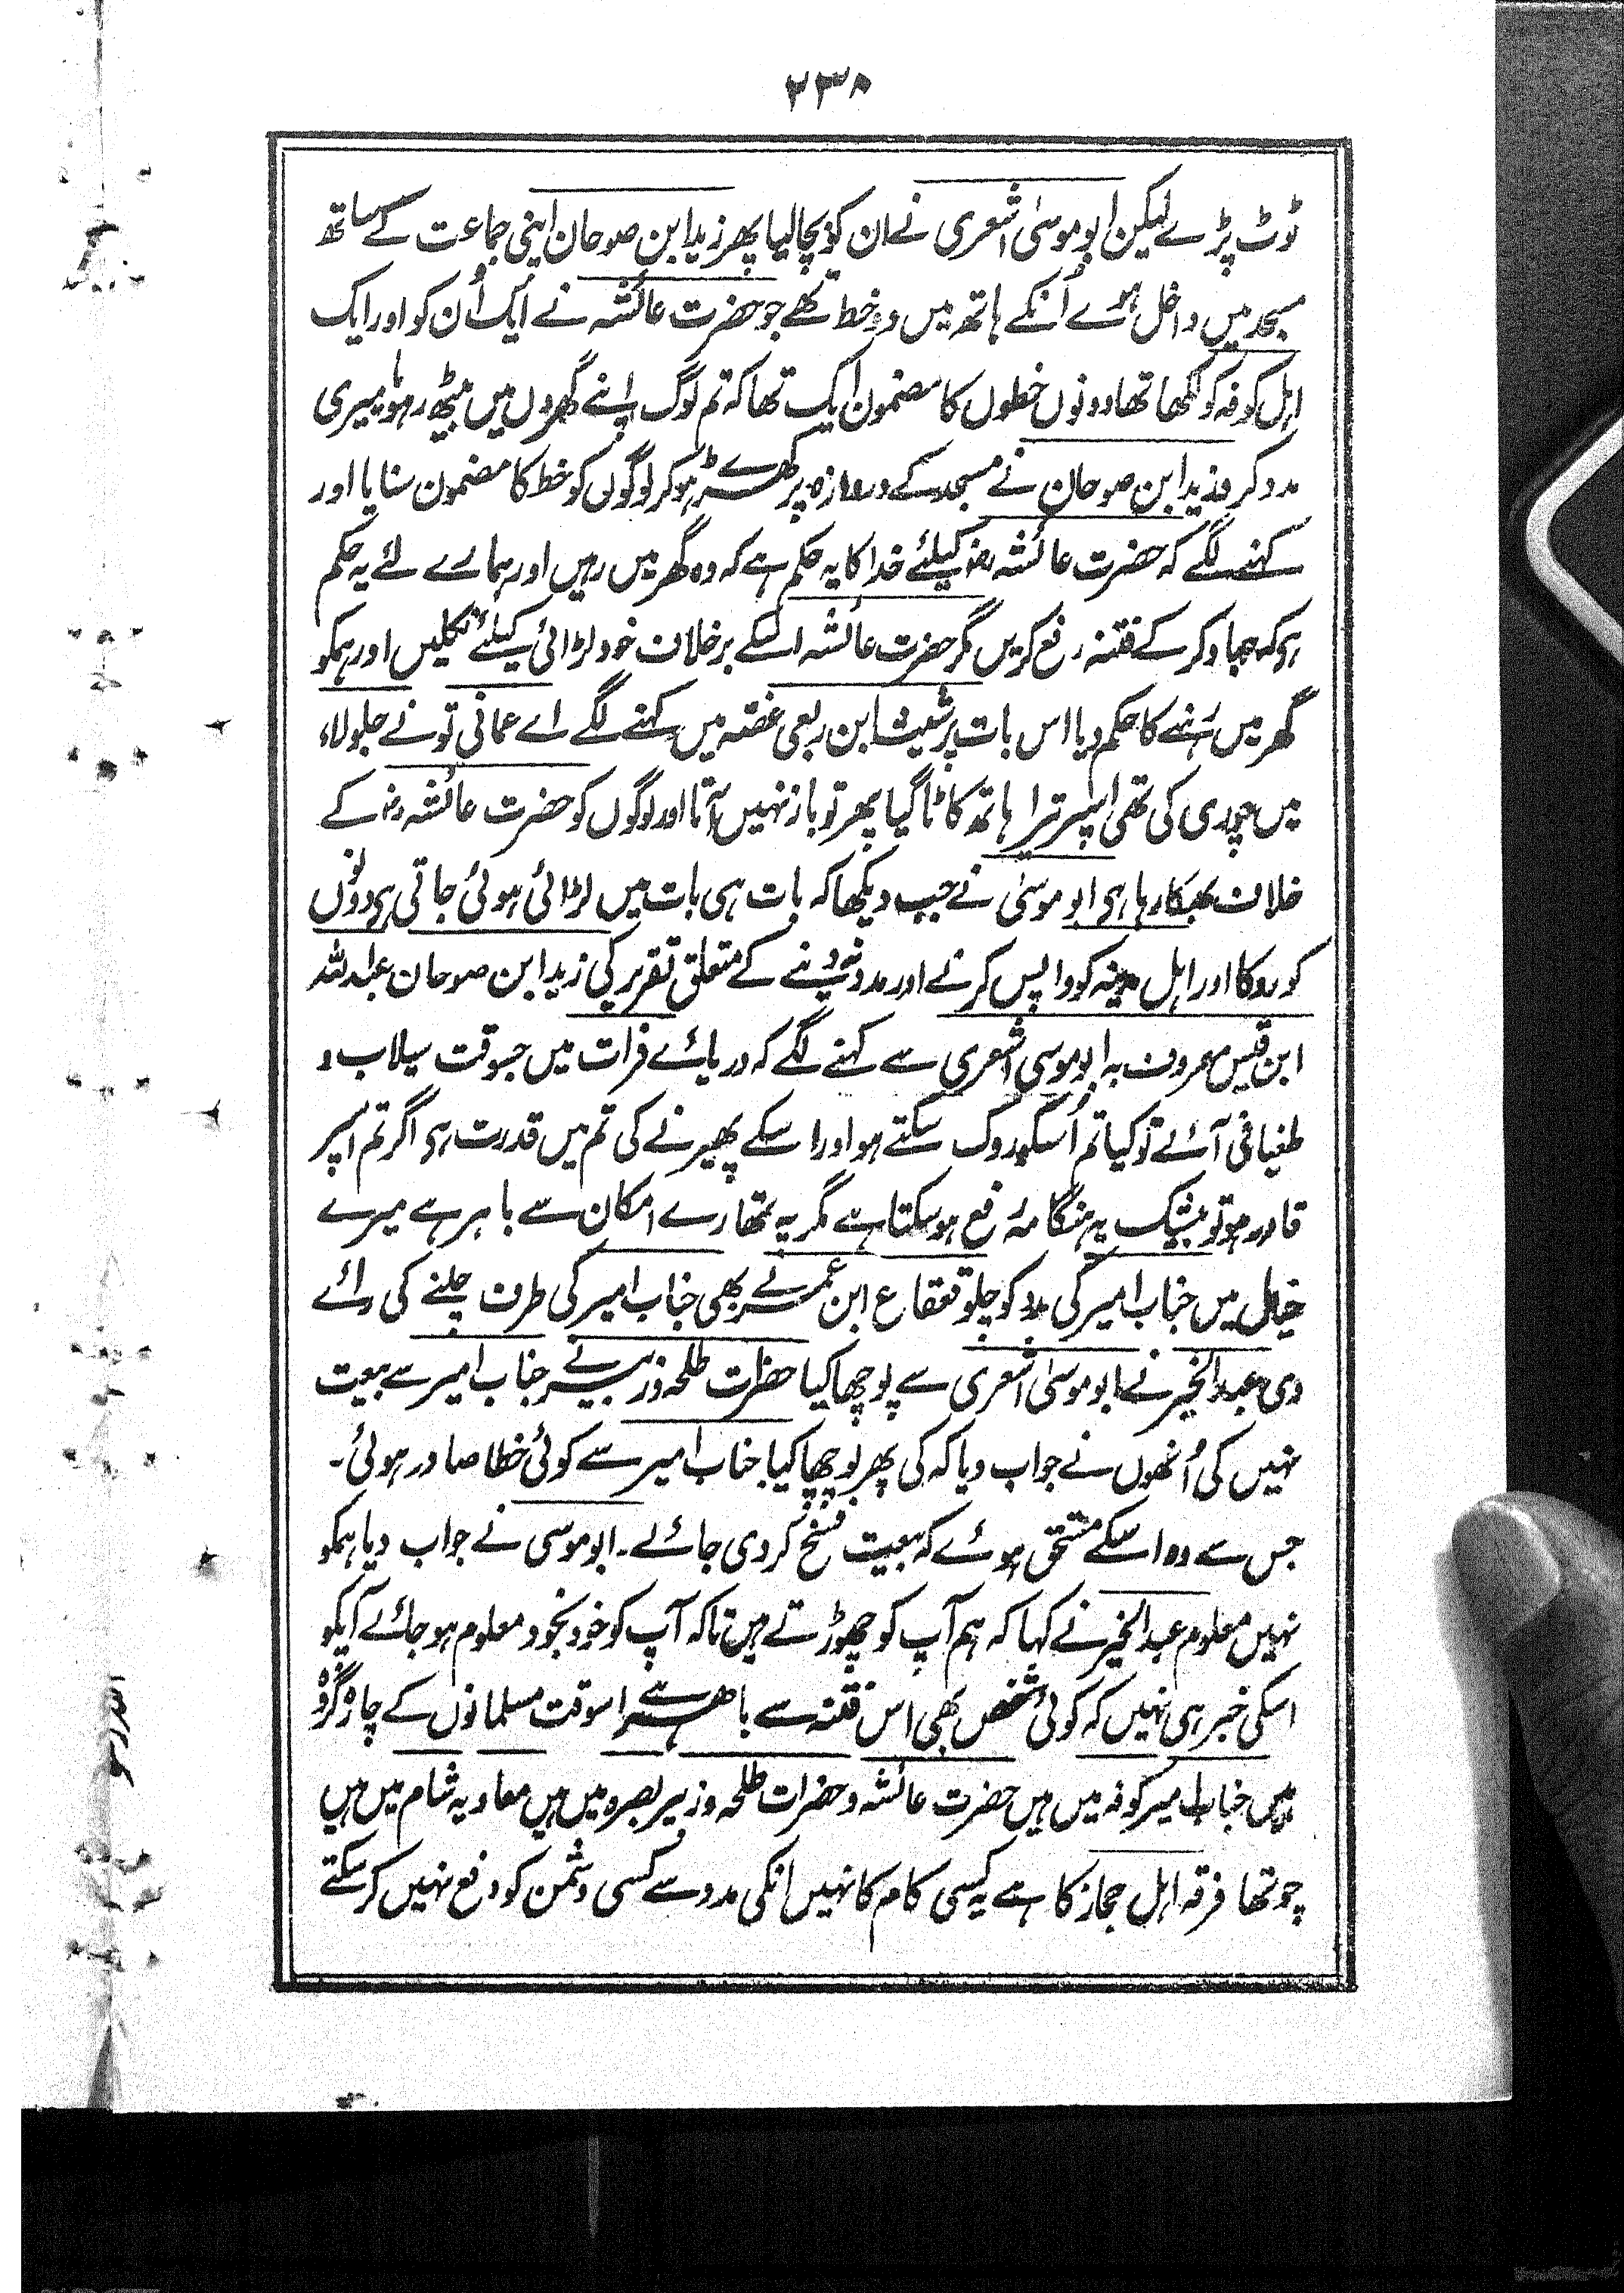 ۲۳۸
ٹوٹ پڑے لیکن ابو موسیٰ اشعری نے ان کو بچا لیا پھر زید ابن صوحان اپنی جماعت کے ساتھ
مسجد میں داخل ہوے اُنکے ہاتھ میں دو خط تھے جو حضرت عائشہ نے ایک اُن کو اور ایک
اہل کوفہ کو لکھا تھا دونوں خطوں کا مضمون ایک تھا کہ تم لوگ اپنے گھروں میں بیٹھ رہو یا میری
مدد کرو زید ابن صوحان نے مسجد کے دروازہ پر کھڑے ہوکر لوگوں کو خط کا مضمون سنایا اور
کہنے لگے کہ حضرت عائشہ رضؓ کیلئے خدا کا یہ حکم ہے کہ وہ گھر میں رہیں اور ہمارے لئے یہ حکم
ہی کہ جہاد کر کے فتنہ رفع کریں مگر حضرت عائشہ اسکے برخلاف خود لڑائی کیلئے نکلیں اور ہمکو
گھر میں رہنے کا حکم دیا اس بات پر شیث ابن ربعی غصہ میں کہنے لگے اے عمانی تو نے جلولاء
میں چوری کی تھی اسپر ترا ہاتھ کاٹا گیا پھر تو باز نہیں آتا اور لوگوں کو حضرت عائشہ رضؓ کے
خلاف بھکا رہا ہی ابو موسیٰ نے جب دیکھا کہ بات ہی بات میں لڑائی ہوئی جاتی ہی دونوں
کو روکا اور اہل مدینہ کو واپس کرنے اور مدد نہ دینے کے متعلق تقریر کی زید ابن صوحان عبد اللہ
ابن قیس معروف بہ ابو موسی اشعری سے کہنے لگے کہ دریائے فرات میں جسوقت سیلاب و
طغیانی آئے تو کیا تم اُسکو روک سکتے ہو اور اسکے پھیرنے کی تم میں قدرت ہی اگر تم اسپر
قادر ہو تو بیشک یہ ہنگامہ رفع ہو سکتا ہے مگر یہ تمھارے امکان سے باہر ہے میرے
خیال میں جناب امیر کی مدد کو چلو قعقاع ابن عمرو نے بھی جناب امیر کی طرف چلنے کی رائے
دی عبد الخیر نے ابو موسیٰ اشعری سے پوچھا کیا حضرات طلحہ و زبیر نے جناب امیر سے بیعت
نہیں کی اُنھوں نے جواب دیا کہ کی پھر پوچھا کیا جناب امیر سے کوئی خطا صادر ہوئی۔
جس سے وہ اسکے مستحق ہوئے کہ بیعت فسخ کر دی جائے۔ ابو موسی نے جواب دیا ہمکو
نہیں معلوم عبد الخیر نے کہا کہ ہم آپ کو چھوڑتے ہیں تاکہ آپ کو خود بخود معلوم ہو جائے آپکو
اسکی خبر ہی نہیں کہ کوئی شخص بھی اس فتنہ سے باہر ہے اسوقت مسلمانوں کے چار گروہ
ہیں جناب امیر کوفہ میں ہیں حضرت عائشہ و حضرات طلحہ و زبیر بصرہ میں ہیں معاویہ شام میں ہیں
چوتھا فرقہ اہل حجاز کا ہے یہ کسی کام کا نہیں انکی مدد سے کسی دشمن کو دفع نہیں کر سکتے